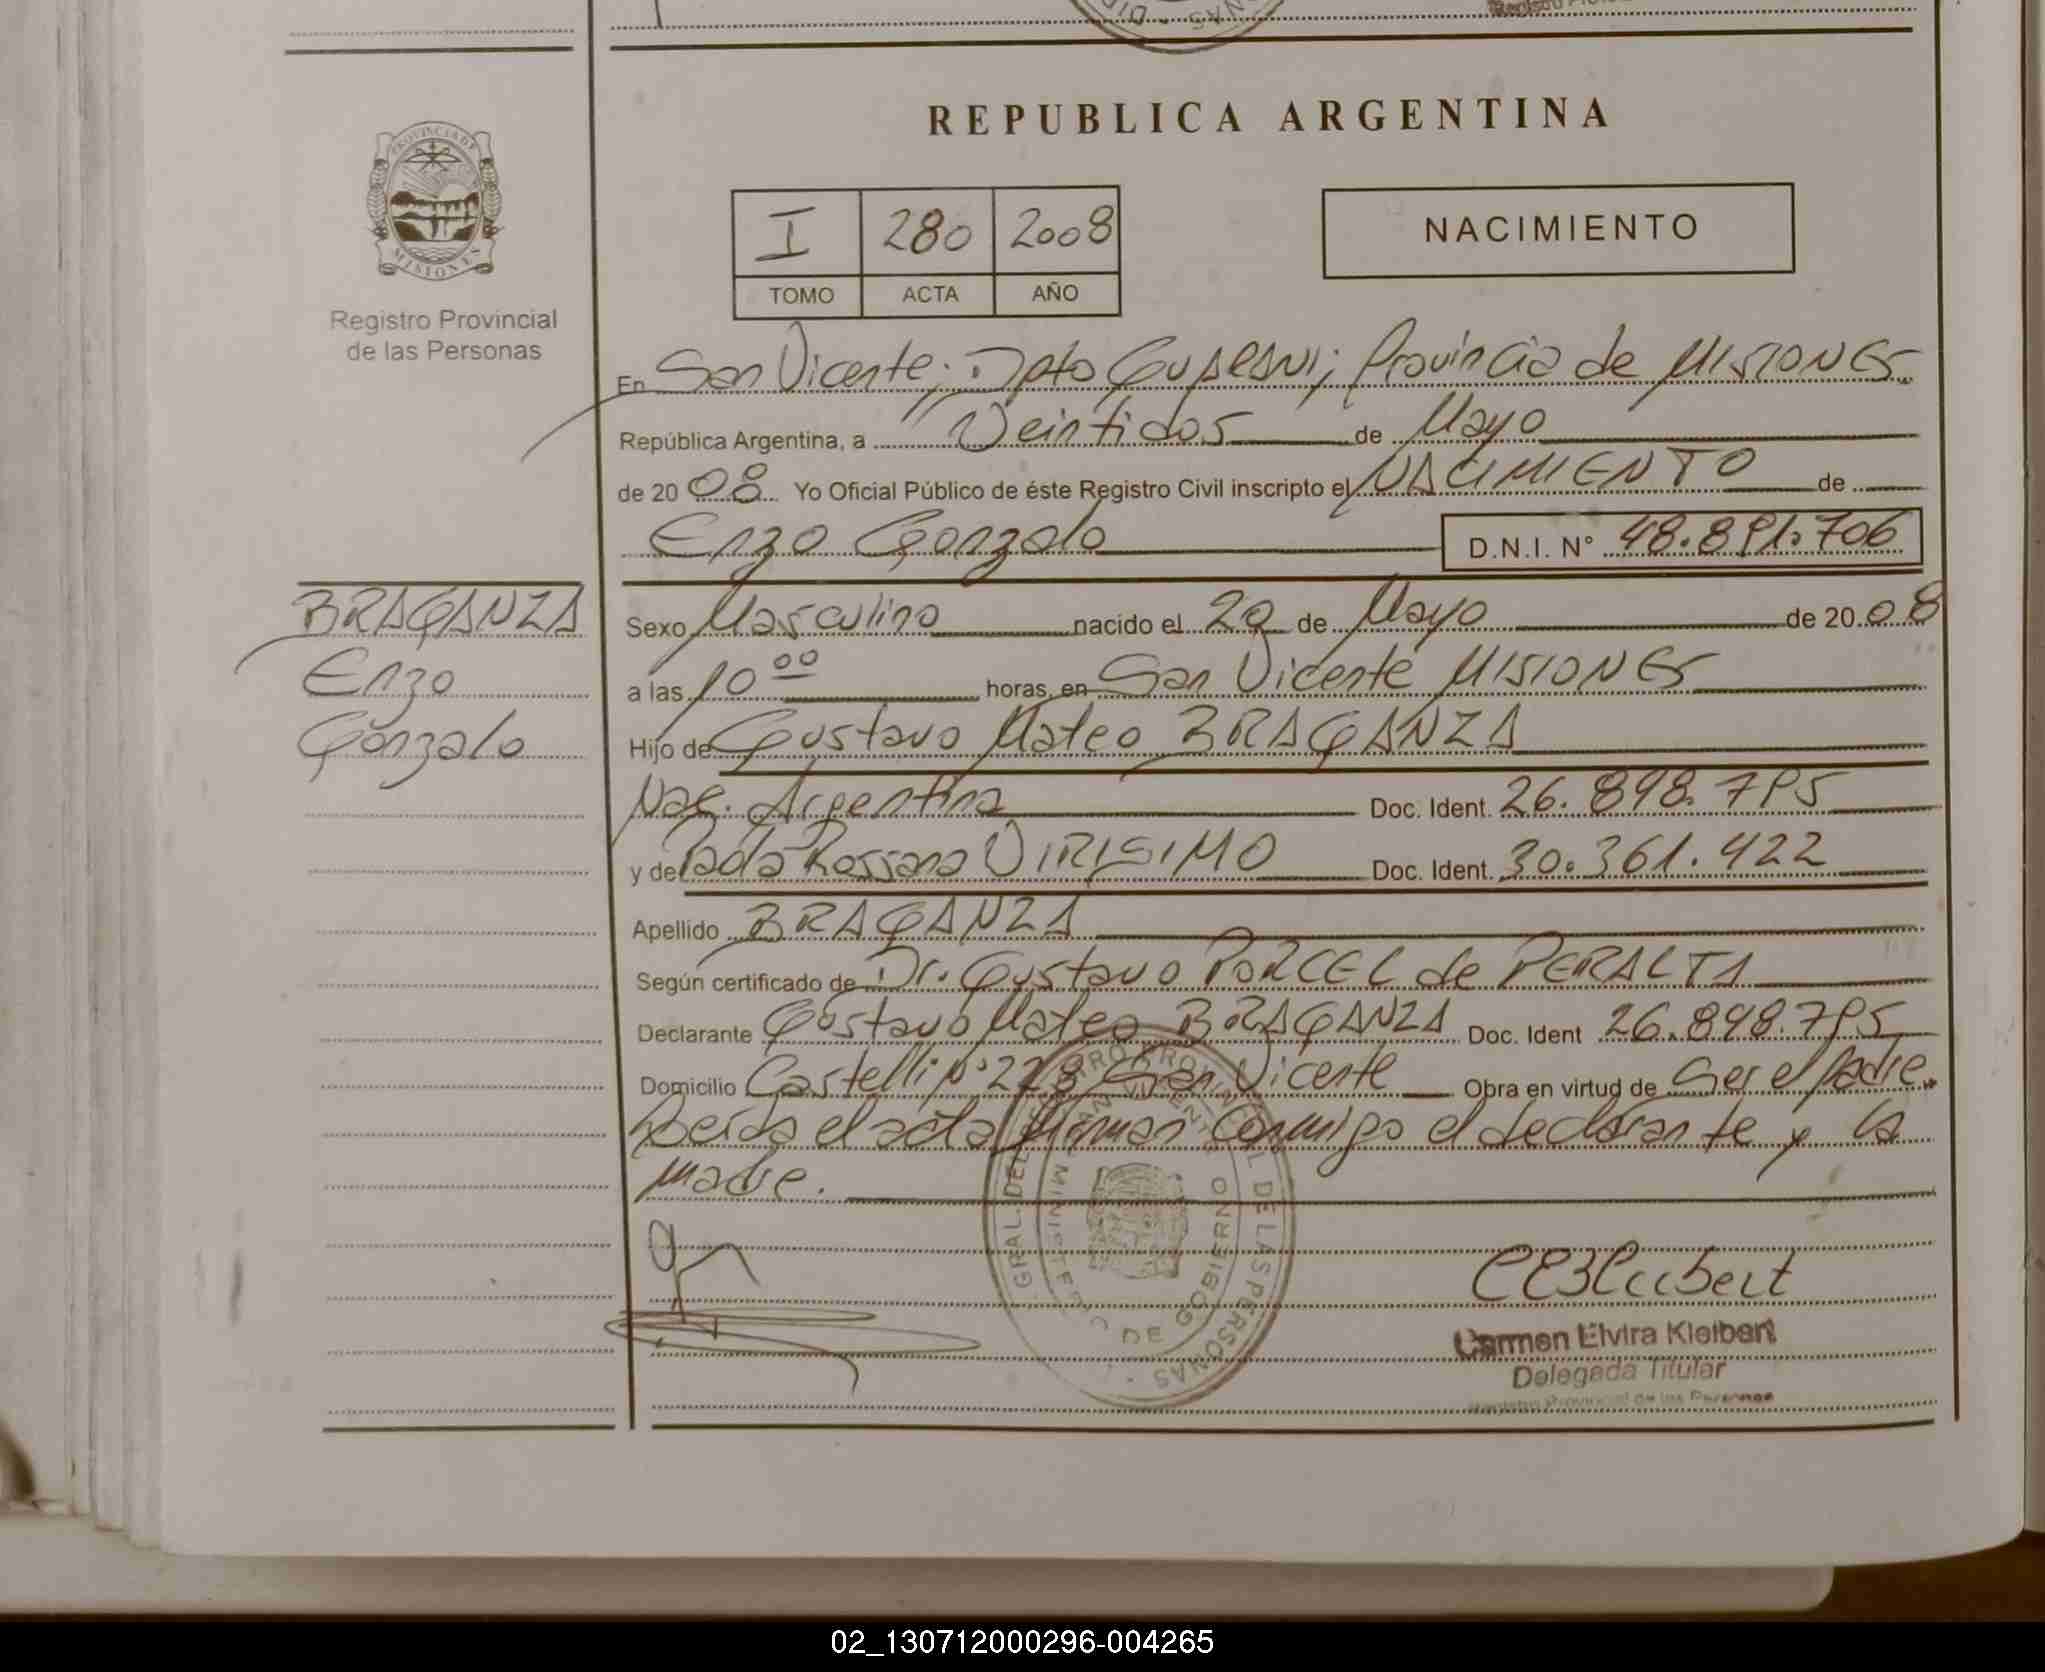 REPUBLICA ARGENTINA
PROVINCIA DE
MISIONES
Registro Provincial
de las Personas
I 280 2008
TOMO ACTA AÑO
NACIMIENTO
En San Vicente; Dpto GUARANI; Provincia de MISIONES
República Argentina, a Veintidos de Mayo
de 2008 Yo Oficial Público de éste Registro Civil inscripto el NACIMIENTO de
Enzo Gonzalo D.N.I. Nº 48.891.706
BRAGANZA
Enzo
Gonzalo
Sexo Masculino nacido el 20 de Mayo de 2008
a las 10 00 horas, en San Vicente MISIONES
Hijo de Gustavo Mateo BRAGANZA
Nac. Argentina Doc. Ident. 26.898.795
y de Paola Rossana VIRISIMO Doc. Ident. 30.361.422
Apellido BRAGANZA
Según certificado de Dr. Gustavo PORCEL de PERALTA
Declarante Gustavo Mateo BRAGANZA Doc. Ident 26.898.795
Domicilio Castelli Nº 228 San Vicente Obra en virtud de Ser el padre
Leída el acta firman conmigo el declarante y la
madre.
Carmen Elvira Kleibert
Delegada Titular
Registro Provincial de las Personas
02_130712000296-004265